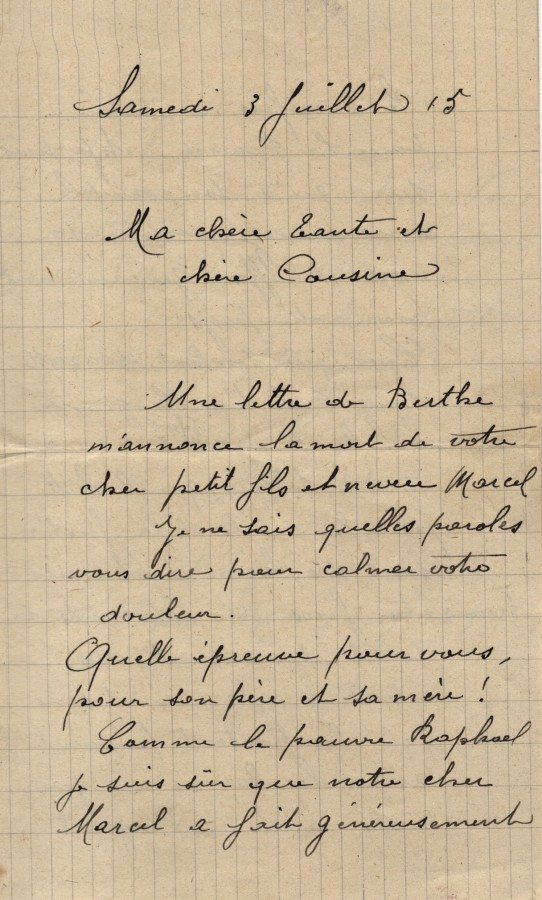 Samedi 3 Juillet 15
Ma chère Tante et
chère Cousine
Une lettre de Berthe
m'annonce la mort de votre
cher petit fils et neveu Marcel
Je ne sais quelles paroles
vous dire pour calmer votre
douleur.
Quelle épreuve pour vous,
pour son père et sa mère !
Comme le pauvre Raphael
je suis sûr que notre cher
Marcel a fait généreusement